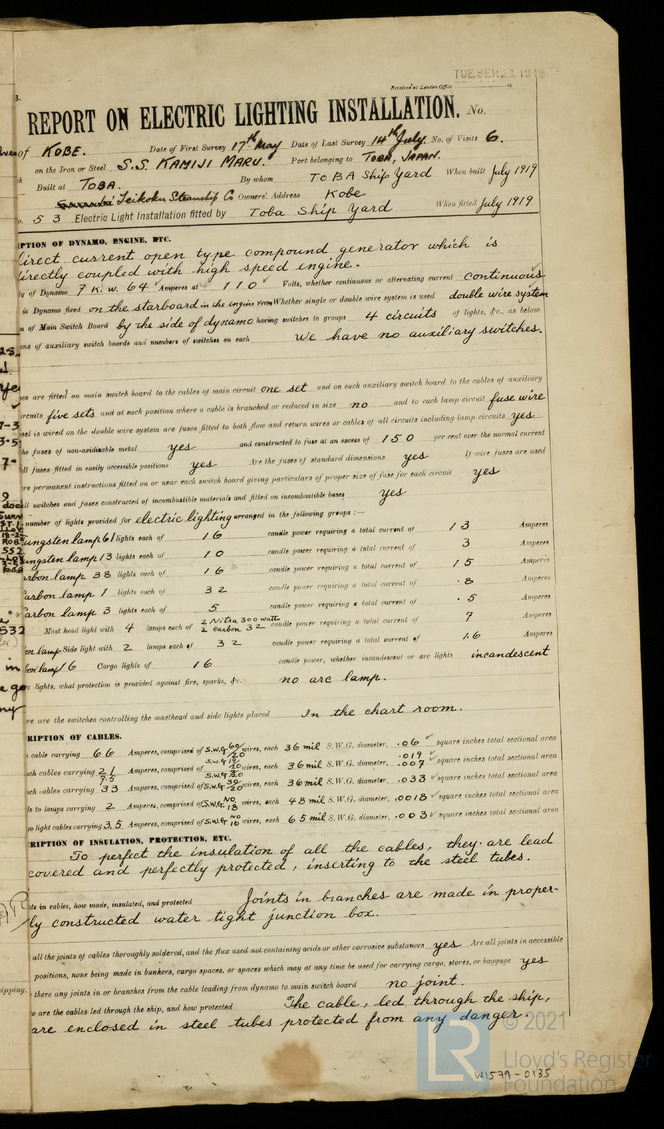 TUE. SEP. 23. 1919
Received at London Office
REPORT ON ELECTRIC LIGHTING INSTALLATION. No.
of KOBE. Date of First Survey 17th May Date of Last Survey 14th July. No. of Visits 6.
on the Iron or Steel S.S. KAMIJI MARU. Port belonging to TOBA, JAPAN.
Built at TOBA. By whom TOBA Ship Yard When built July 1919
Teikoku Steamship Co Owners' Address Kobe
53 Electric Light Installation fitted by Toba Ship Yard When fitted July 1919
IPTION OF DYNAMO, ENGINE, ETC.
Direct current open type compound generator which is
directly coupled with high speed engine.
ty of Dynamo 7 K.W. 64 Amperes at 110 Volts, whether continuous or alternating current continuous
is Dynamo fixed on the starboard in the engine room Whether single or double wire system is used double wire system
n of Main Switch Board by the side of dynamo having switches to groups 4 circuits of lights, &c., as below
ns of auxiliary switch boards and numbers of switches on each We have no auxiliary switches.
es are fitted on main switch board to the cables of main circuit one set and on each auxiliary switch board to the cables of auxiliary
rcuits five sets and at each position where a cable is branched or reduced in size no and to each lamp circuit fuse wire
sel is wired on the double wire system are fuses fitted to both flow and return wires or cables of all circuits including lamp circuits yes
he fuses of non-oxidizable metal yes and constructed to fuse at an excess of 150 per cent over the normal current
ll fuses fitted in easily accessible positions yes Are the fuses of standard dimensions yes If wire fuses are used
re permanent instructions fitted on or near each switch board giving particulars of proper size of fuse for each circuit yes
ll switches and fuses constructed of incombustible materials and fitted on incombustible bases yes
number of lights provided for electric lighting arranged in the following groups :—
ungsten lamp 61 lights each of 16 candle power requiring a total current of 13 Amperes
ungsten lamp 13 lights each of 10 candle power requiring a total current of 3 Amperes
arbon lamp 38 lights each of 16 candle power requiring a total current of 15 Amperes
Carbon lamp 1 lights each of 32 candle power requiring a total current of .8 Amperes
Carbon lamp 3 lights each of 5 candle power requiring a total current of .5 Amperes
Mast head light with 4 lamps each of 2 Nitra 300 watt 2 Carbon 32 candle power requiring a total current of 7 Amperes
on lamp Side light with 2 lamps each of 32 candle power requiring a total current of 1.6 Amperes
bon lamp 6 Cargo lights of 16 candle power, whether incandescent or arc lights incandescent
c lights, what protection is provided against fire, sparks, &c. no arc lamp.
re are the switches controlling the masthead and side lights placed In the chart room.
RIPTION OF CABLES.
cable carrying 66 Amperes, comprised of S.W.G 60/20 wires, each 36 mil S.W.G. diameter, .06 square inches total sectional area
ch cables carrying 21 9.5 Amperes, comprised of S.W.G 19/20 S.W.G wires, each 36 mil S.W.G. diameter, .019 .007 square inches total sectional area
ch cables carrying 33 Amperes, comprised of S.W.G 30/20 wires, each 36 mil S.W.G. diameter, .033 square inches total sectional area
s to lamps carrying 2 Amperes, comprised of S.W.G. NO 18 wires, each 48 mil S.W.G. diameter, .0018 square inches total sectional area
go light cables carrying 3.5 Amperes, comprised of S.W.G NO 16 wires, each 65 mil S.W.G. diameter, .003 square inches total sectional area
RIPTION OF INSULATION, PROTECTION, ETC.
To perfect the insulation of all the cables, they are lead
covered and perfectly protected, inserting to the steel tubes.
ts in cables, how made, insulated, and protected Joints in branches are made in proper-
ly constructed water tight junction box.
all the joints of cables thoroughly soldered, and the flux used not containing acids or other corrosive substances yes Are all joints in accessible
positions, none being made in bunkers, cargo spaces, or spaces which may at any time be used for carrying cargo, stores, or baggage yes
there any joints in or branches from the cable leading from dynamo to main switch board no joint.
o are the cables led through the ship, and how protected The cable, led through the ship,
are enclosed in steel tubes protected from any danger.
© 2021
LR
Lloyd's Register
Foundation
W1577-0135